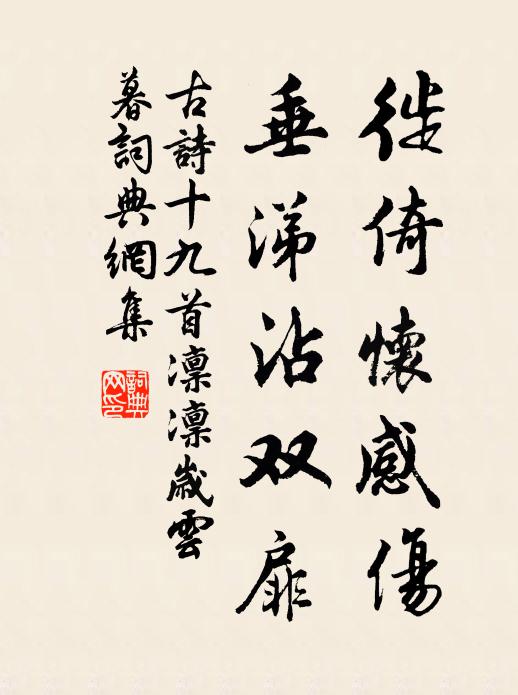 徙倚懷感傷
垂涕沾双扉
古詩十九首凛凛歲雲
暮詞典網集
詞典
网印